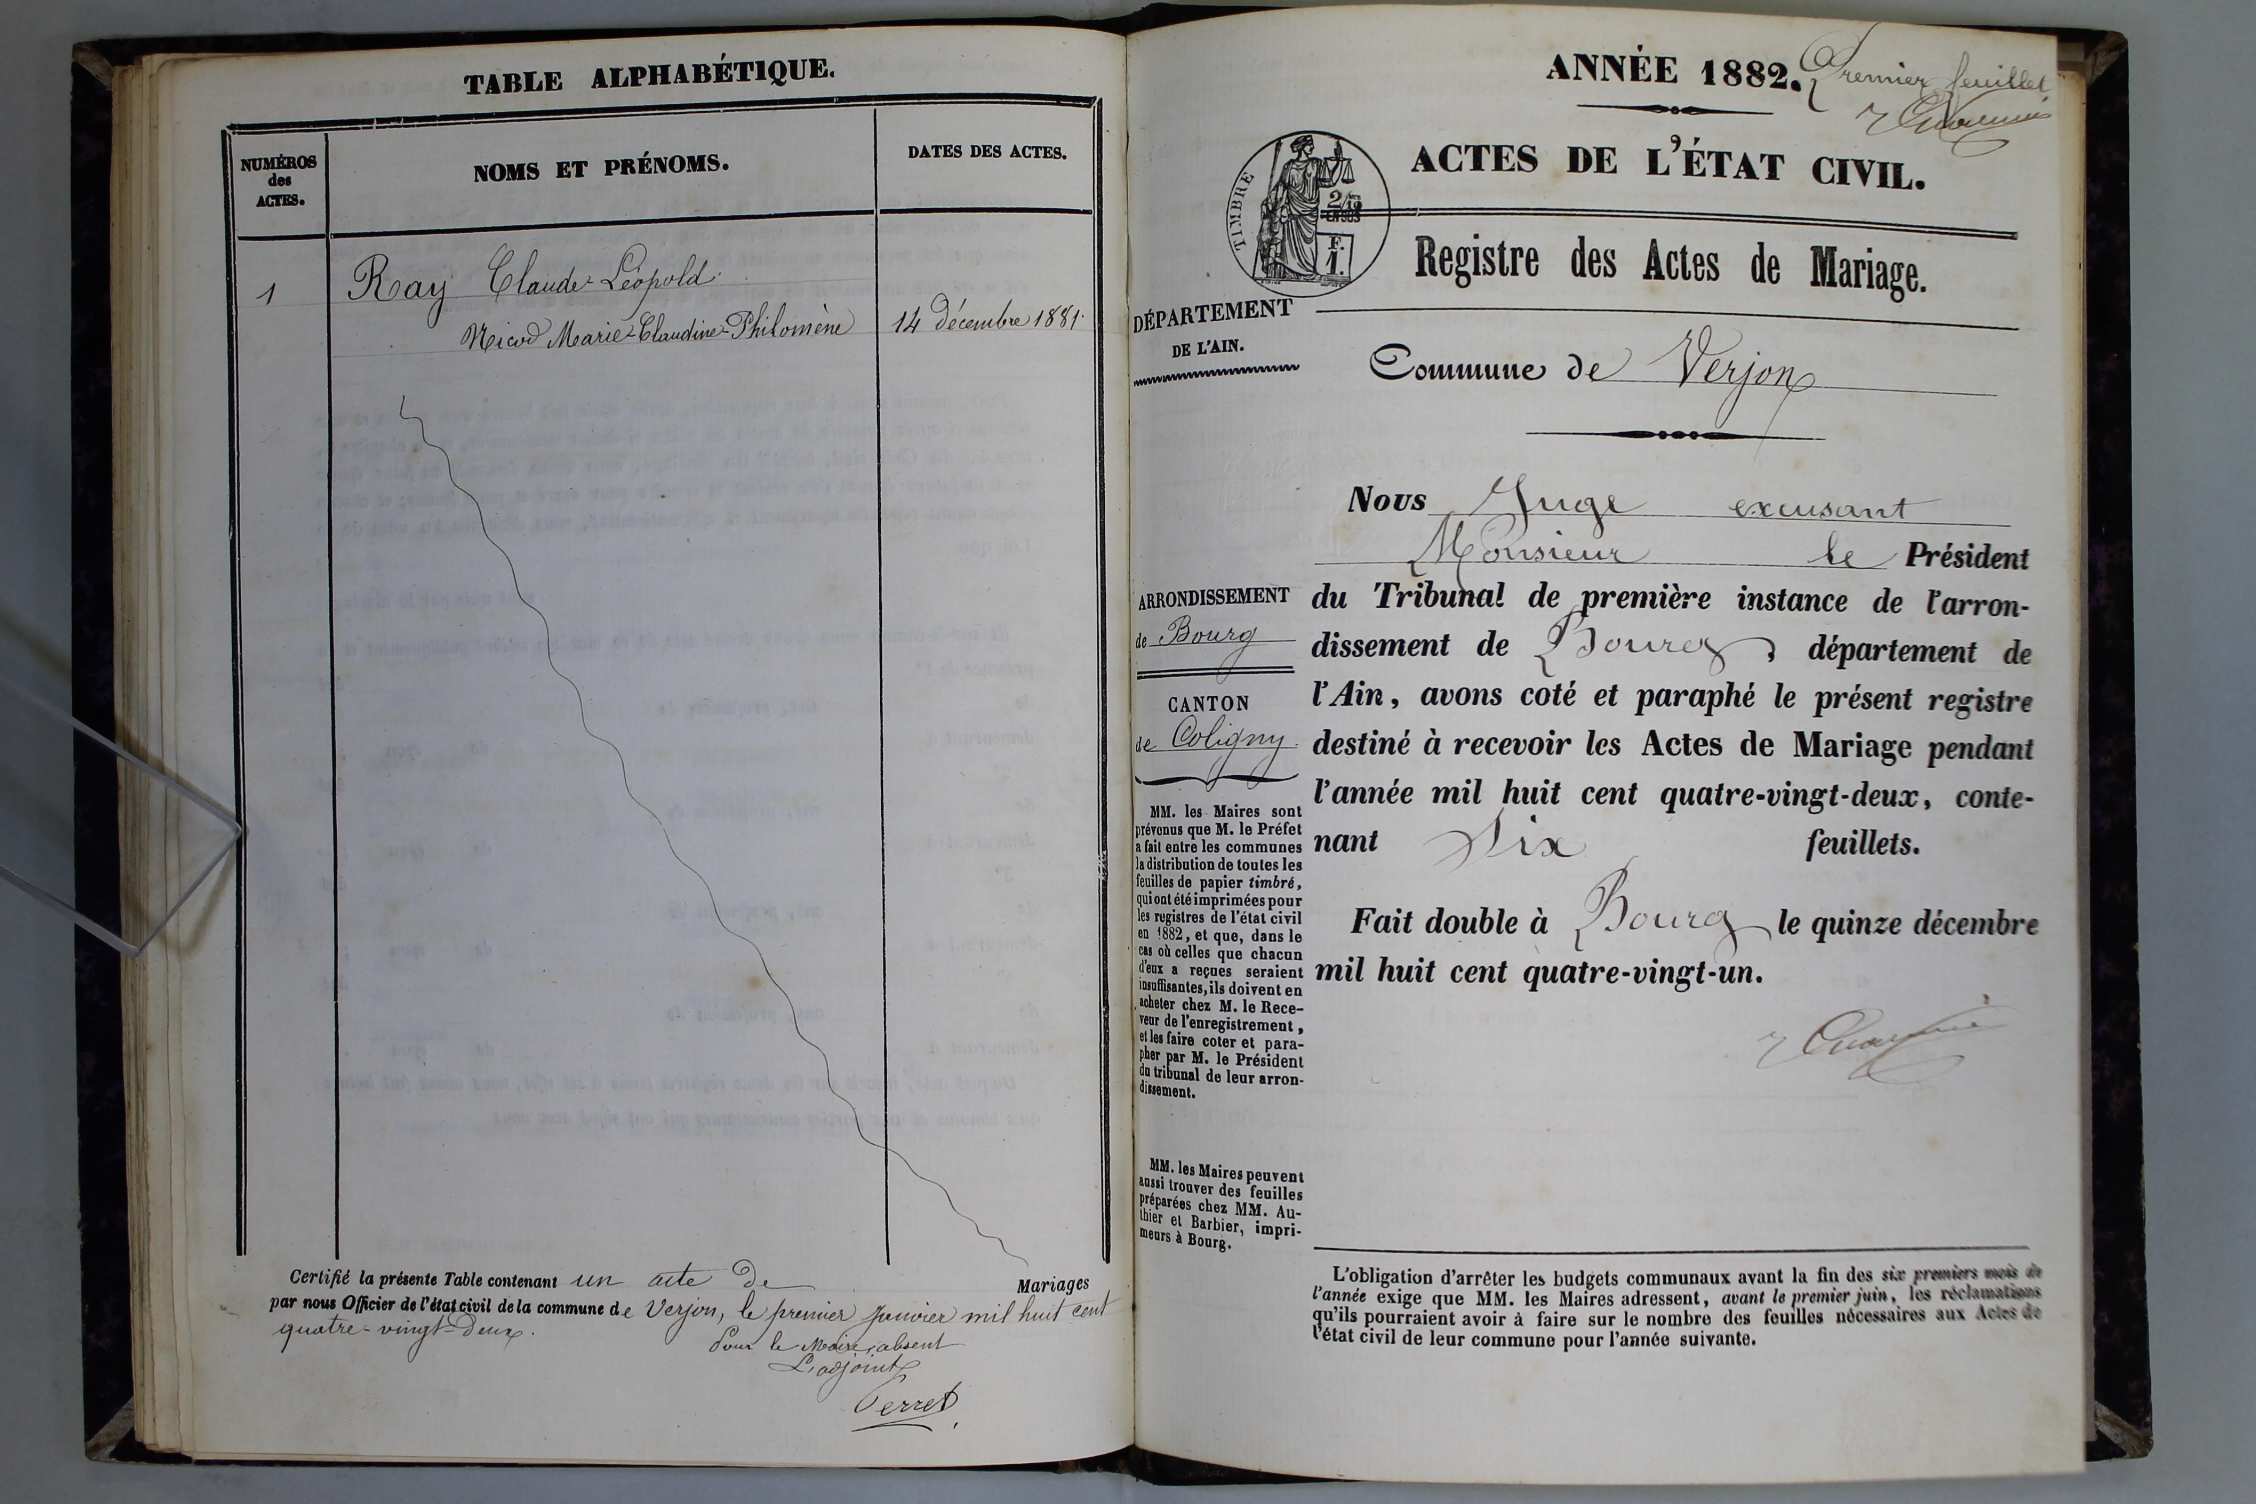 TABLE ALPHABÉTIQUE.
NUMÉROS
des
ACTES.
NOMS ET PRÉNOMS.
DATES DES ACTES.
1
Ray Claude-Léopold
Nicod Marie-Claudine-Philomène
14 décembre 1881.
Certifié la présente Table contenant un acte de Mariages
par nous Officier de l'état civil de la commune de Verjon, le premier janvier mil huit cent
quatre-vingt-deux.
Pour le Maire, absent
L'adjoint
Perret
ANNÉE 1882.
Premier feuillet
ACTES DE L'ÉTAT CIVIL.
TIMBRE
2/10
EN SUS
F.
1.
Registre des Actes de Mariage.
DÉPARTEMENT
DE L'AIN.
Commune de Verjon
ARRONDISSEMENT
de Bourg
CANTON
de Coligny
MM. les Maires sont
prévenus que M. le Préfet
a fait entre les communes
la distribution de toutes les
feuilles de papier timbré,
qui ont été imprimées pour
les registres de l'état civil
en 1882, et que, dans le
cas où celles que chacun
d'eux a reçues seraient
insuffisantes, ils doivent en
acheter chez M. le Rece-
veur de l'enregistrement,
et les faire coter et para-
pher par M. le Président
du tribunal de leur arron-
dissement.
MM. les Maires peuvent
aussi trouver des feuilles
préparées chez MM. Au-
thier et Barbier, impri-
meurs à Bourg.
Nous Juge excusant
Monsieur le Président
du Tribunal de première instance de l'arron-
dissement de Bourg, département de
l'Ain, avons coté et paraphé le présent registre
destiné à recevoir les Actes de Mariage pendant
l'année mil huit cent quatre-vingt-deux, conte-
nant Six feuillets.
Fait double à Bourg le quinze décembre
mil huit cent quatre-vingt-un.
L'obligation d'arrêter les budgets communaux avant la fin des six premiers mois de
l'année exige que MM. les Maires adressent, avant le premier juin, les réclamations
qu'ils pourraient avoir à faire sur le nombre des feuilles nécessaires aux Actes de
l'état civil de leur commune pour l'année suivante.